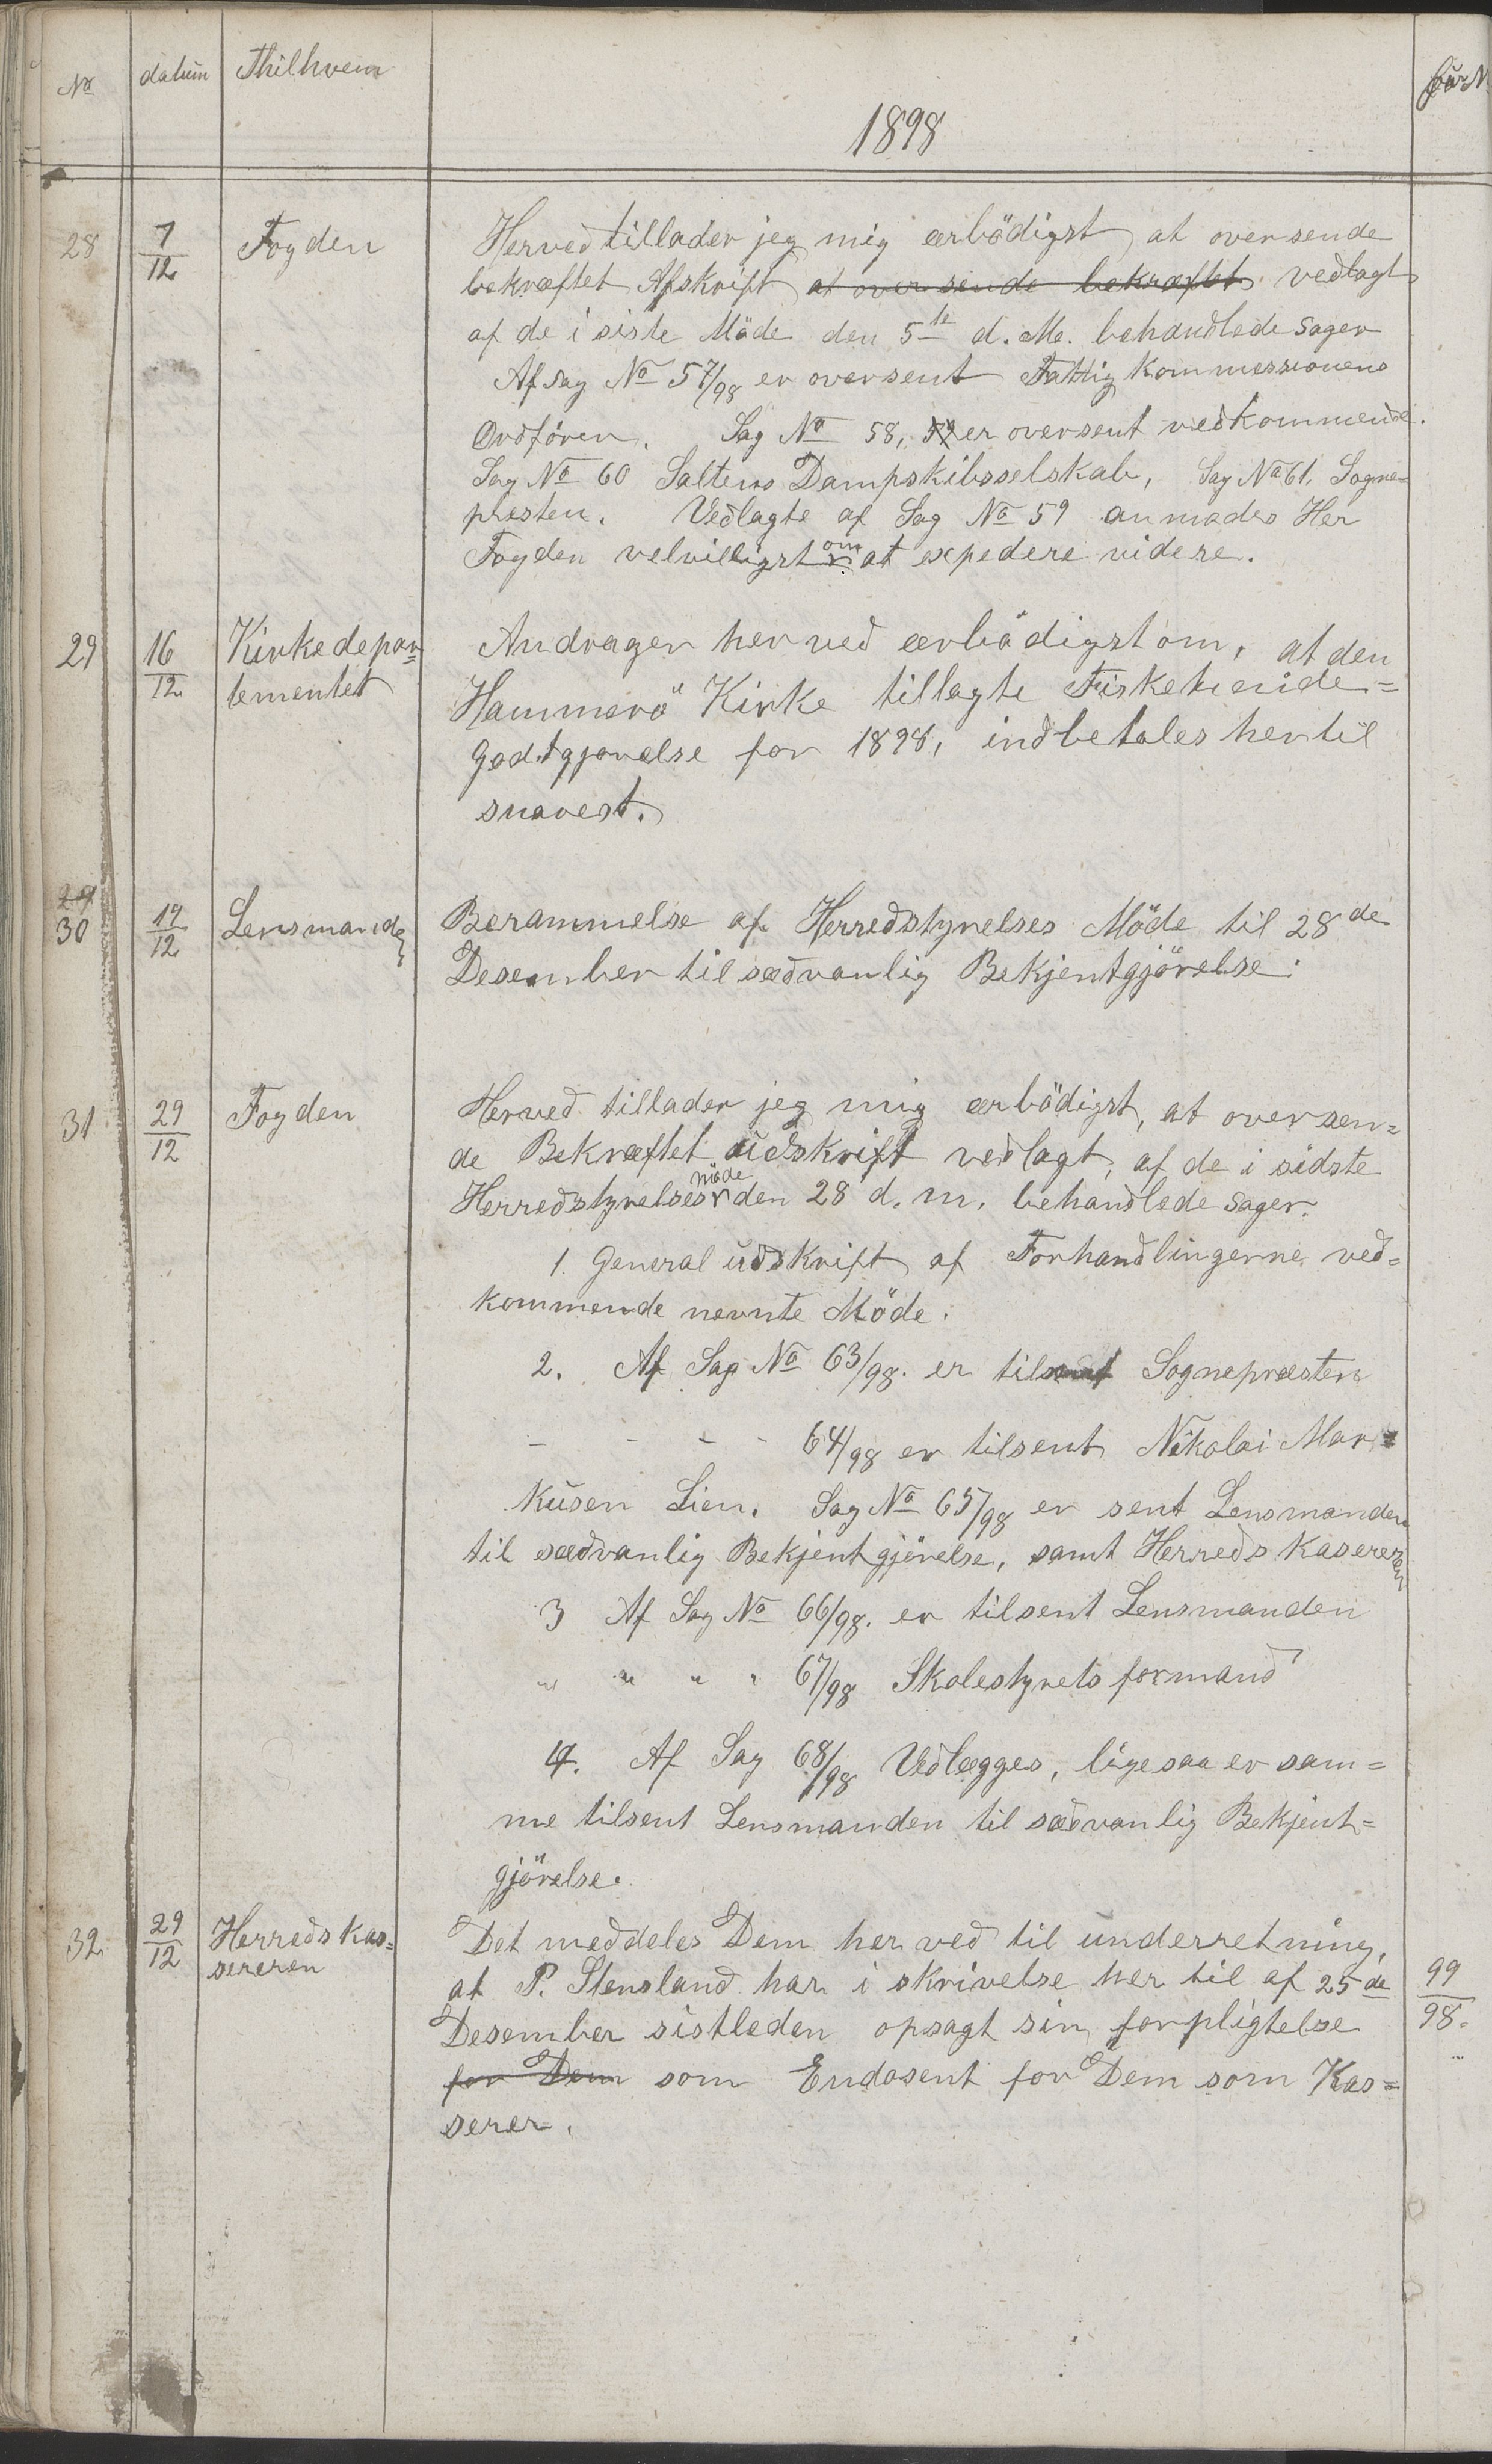 No datum Thilhvem
1898
28 7/12 Fogden Herved tillader jeg mig ærbödigst at oversende
bekræftet Afskrift at oversende bekræftet vedlagt
af de i siste Möde den 5te d. M. behandlede sager
Af sag No 57/98 er oversent Fattig Kommessionens
Ordförer. Sag No 58, 59 er oversent vedkommende.
Sag No 60 Saltens Dampskibsselskab, Sag No 61, Sogne=
presten. Vedlagte af Sag No 59 anmodes Her
Fogden velvilligst om at expedere videre.
29 16/12 Kirkedepar= Andrager herved ærbödigst om, at den
tementet Hammerö Kirke tillagte Fisketiende=
Godtgjörelse for 1898, indbetales hertil
snarest.
29
30 17/12 Lensmanden Berammelse af Herredstyrelses Möde til 28de
Desember til sædvanlig Bekjentgjörelse.
31 29/12 Fogden Herved tillader jeg mig ærbödigst, at oversen=
de Bekræftet udskrift vedlagt, af de i sidste
Herredstyrelses möde den 28 d. m. behandlede sager.
1 General udskrift af Forhandlingerne ved=
kommende nevnte Möde.
2. Af Sag No 63/98. er tilsent Sognepræsten
- - - - 64/98 er tilsent Nikolai Mar=
kusen Lien. Sag No 65/98 er sent Lensmanden
til sædvanlig Bekjentgjörelse, samt Herreds Kasereren
3 Af Sag No 66/98. er tilsent Lensmanden
" " " " 67/98 Skolestyrets formand
4. Af Sag 68/98 Vedlægges, ligesaa er sam=
me tilsent Lensmanden til sædvanlig Bekjent=
gjörelse.
32 29/12 Herreds kas= Det meddeles Dem herved til underretning,
sereren at P. Stensland har i skrivelse her til af 25de 99/98.
Desember sistleden opsagt sin forpligtelse
for Dem som Endosent for Dem som Kas=
serer.